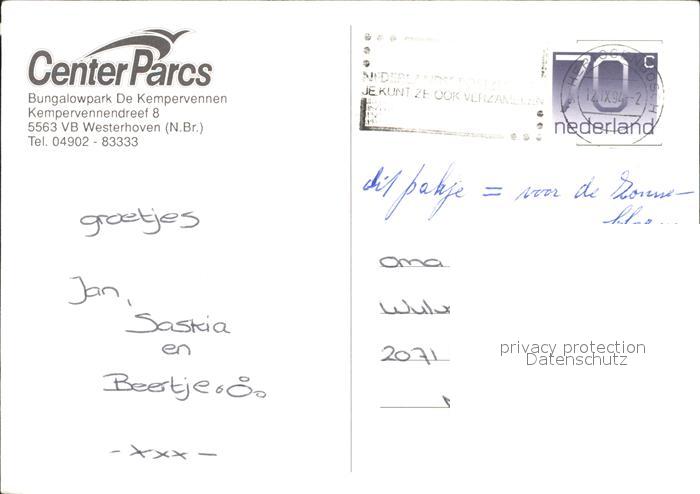 Center Parcs
Bungalowpark De Kempervennen
Kempervennendreef 8
5563 VB Westerhoven (N.Br.)
Tel. 04902 - 83333
JE KUNT ZE OOK VERZAMELEN
12.IX.94
70 c
nederland
dit pakje = voor de Zonne-
groetjes
Jan,
Saskia
en
Beertje
-xxx-
oma
2071
privacy protection
Datenschutz